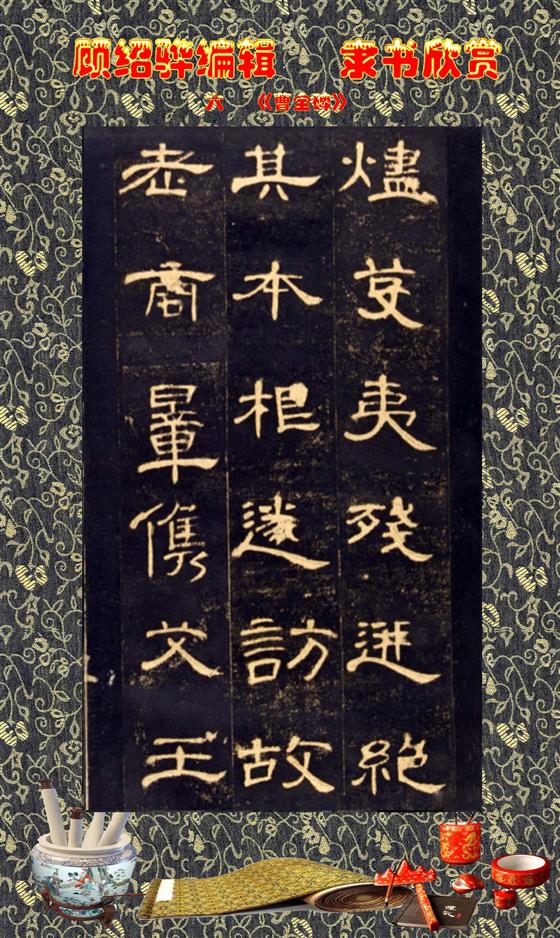 顾绍骅编辑 隶书欣赏
六 《曹全碑》
燼芟夷殘迸絕
其本根遂訪故
老商量儁艾王